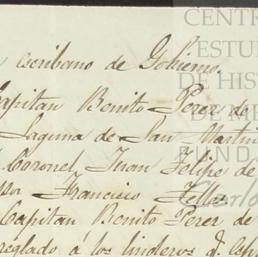 escribano de Gobierno.
Capitan Benito Perez de
Laguna de San Martin
Coronel Juan Felipe de
Francisco Tellez
Capitan Benito Perez de
reglado á los linderos q.
CENTR
ESTU
DE HIS
DE